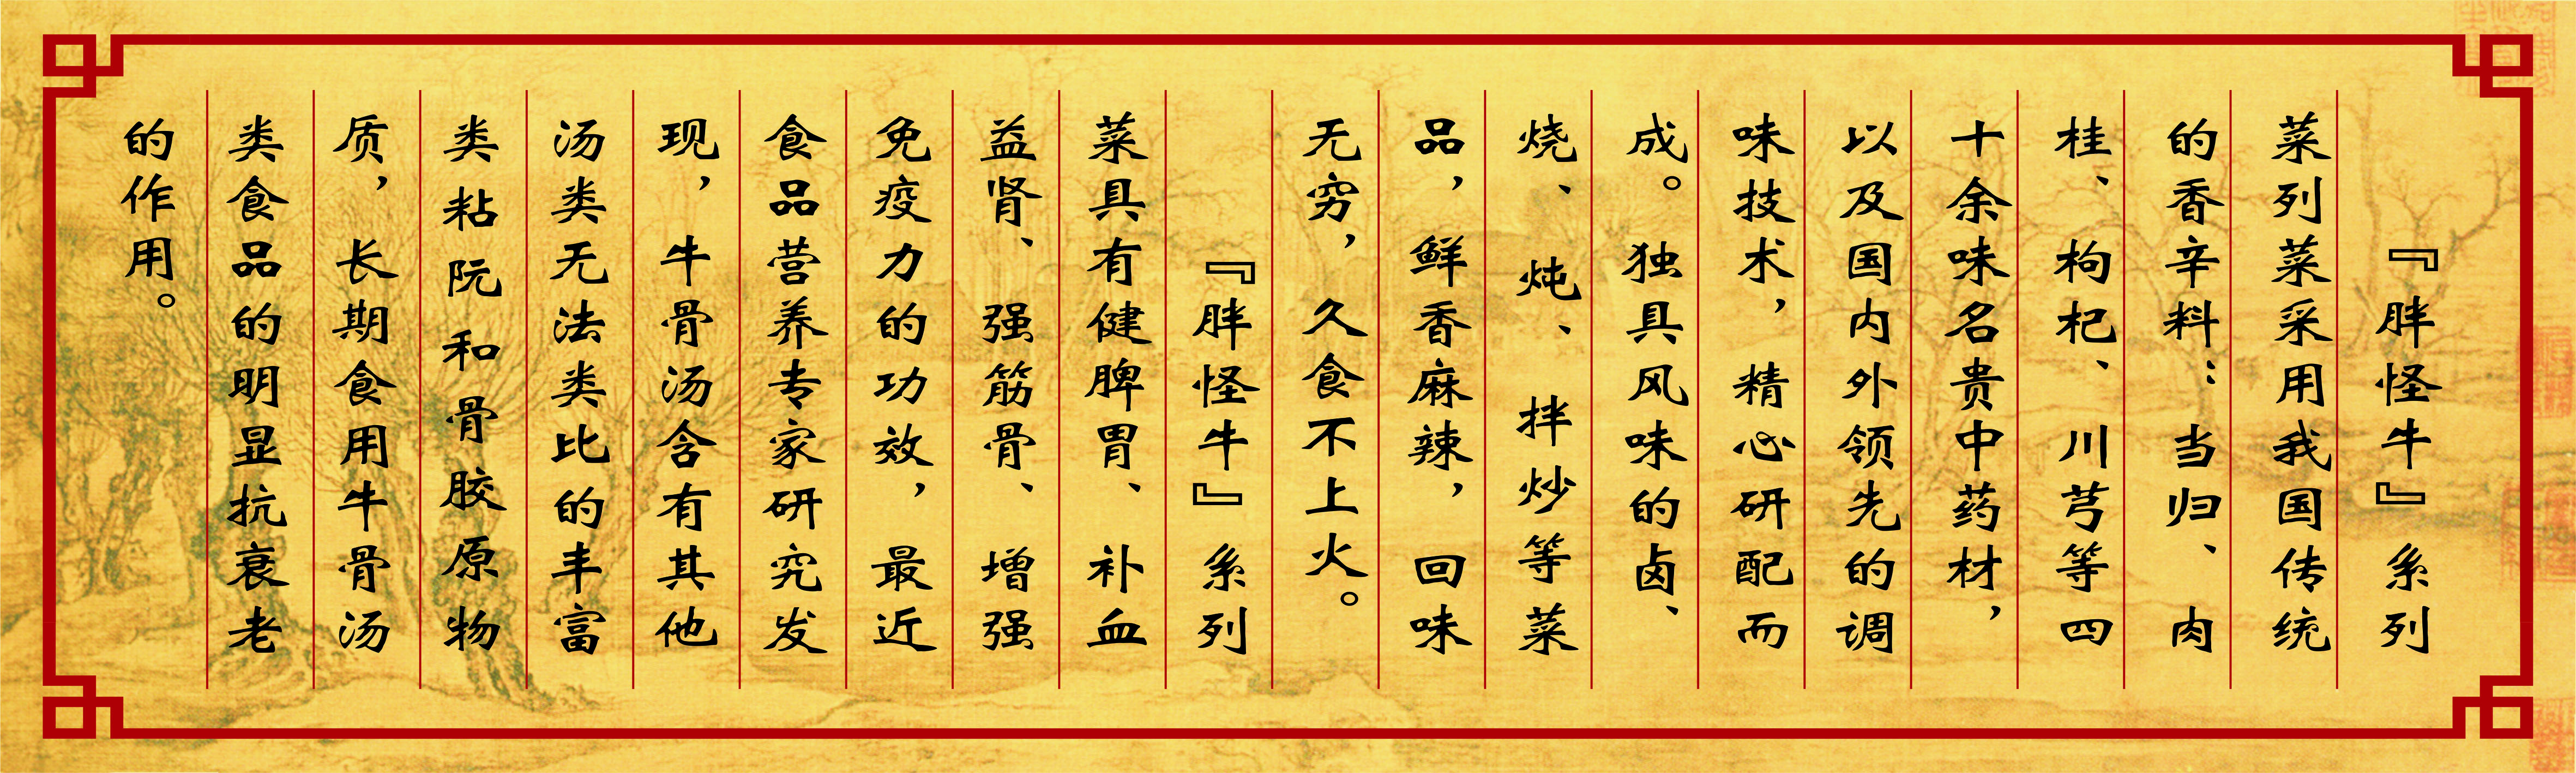 『胖怪牛』系列
菜列菜采用我国传统
的香辛料：当归、肉
桂、枸杞、川芎等四
十余味名贵中药材，
以及国内外领先的调
味技术，精心研配而
成。独具风味的卤、
烧、炖、拌炒等菜
品，鲜香麻辣，回味
无穷，久食不上火。
『胖怪牛』系列
菜具有健脾胃、补血
益肾、强筋骨、增强
免疫力的功效，最近
食品营养专家研究发
现，牛骨汤含有其他
汤类无法类比的丰富
类粘阮和骨胶原物
质，长期食用牛骨汤
类食品的明显抗衰老
的作用。